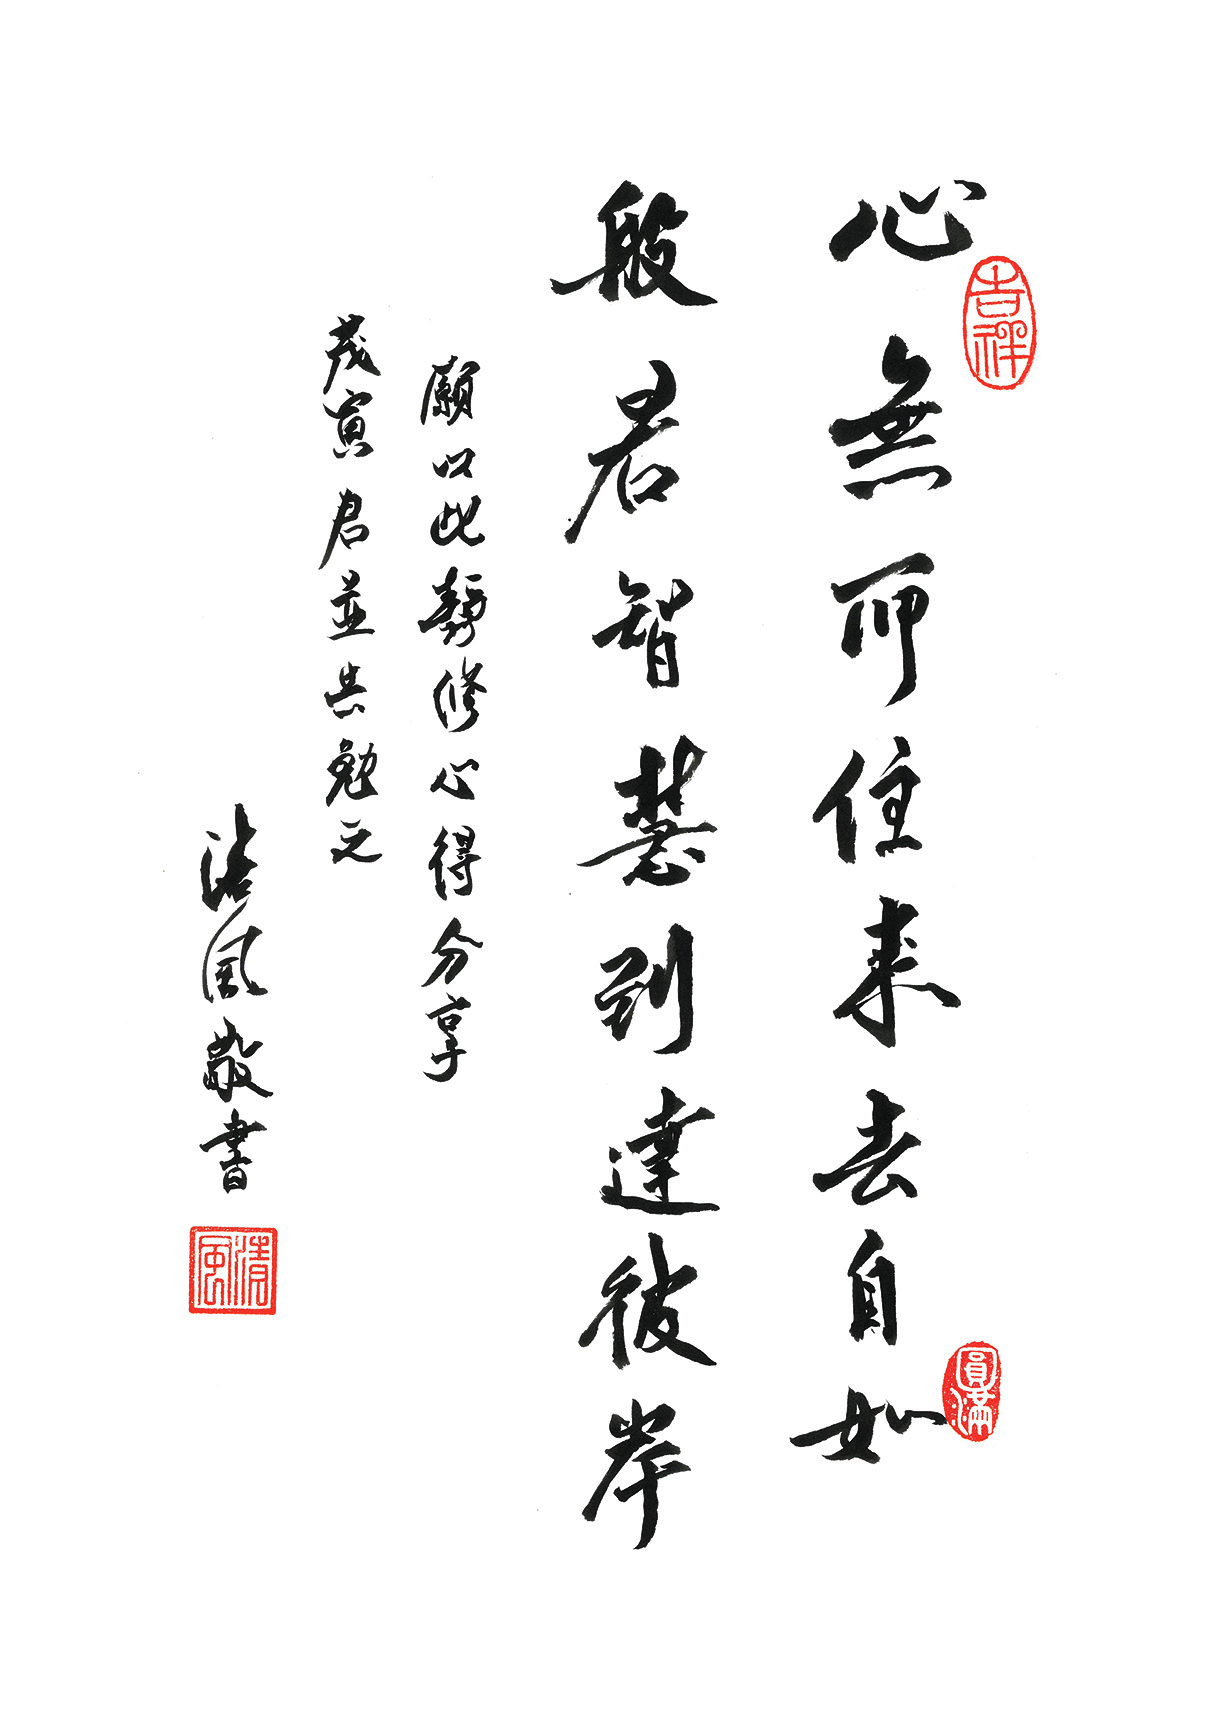 心無所住来去自如
般若智慧到達彼岸
願以此靜修心得分享
茂寅君並共勉之
清風敬書
吉祥
圓滿
清風